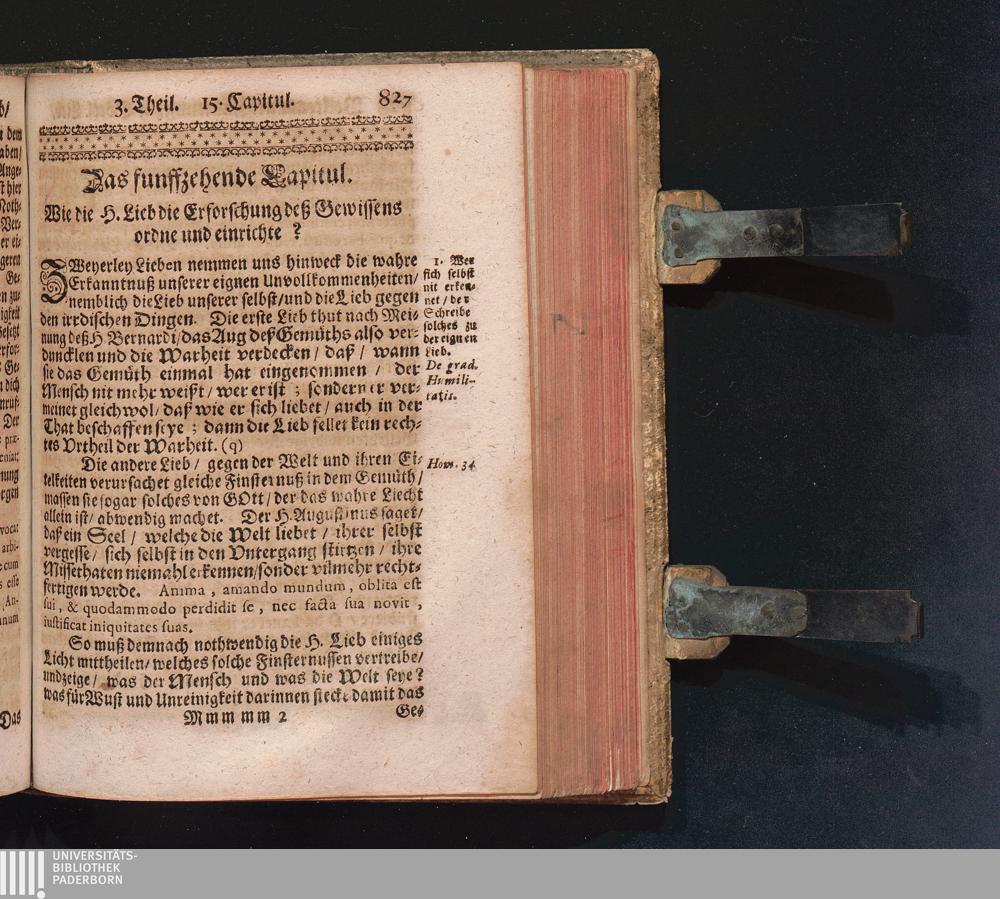 3. Theil. 15. Capitul. 827
Das funffzehende Capitul.
Wie die H. Lieb die Erforschung deß Gewissens
ordne und einrichte ?
ZWeyerley Lieben nemmen uns hinweck die wahre
Erkanntnuß unserer eignen Unvollkommenheiten/
nemblich die Lieb unserer selbst/und die Lieb gegen
den irrdischen Dingen. Die erste Lieb thut nach Mei-
nung deß H. Bernardi/das Aug deß Gemüths also ver-
duncklen und die Warheit verdecken / daß / wann
sie das Gemüth einmal hat eingenommen / der
Mensch nit mehr weißt / wer er ist ; sondern er ver-
meinet gleichwol / daß wie er sich liebet / auch in der
That beschaffen seye ; dann die Lieb fellet kein rech-
tes Vrtheil der Warheit. (q)
Die andere Lieb / gegen der Welt und ihren Ei-
telkeiten verursachet gleiche Finsternuß in dem Gemüth /
massen sie sogar solches von GOtt / der das wahre Liecht
allein ist / abwendig machet. Der H. Augustinus saget /
daß ein Seel / welche die Welt liebet / ihrer selbst
vergesse / sich selbst in den Vntergang stürtzen / ihre
Missethaten niemahl erkennen/sonder vilmehr recht-
fertigen werde. Anima , amando mundum, oblita est
sui, & quodammodo perdidit se , nec facta sua novit ,
iustificat iniquitates suas.
So muß demnach nothwendig die H. Lieb einiges
Licht mittheilen/welches solche Finsternussen vertreibe/
und zeige / was der Mensch und was die Welt seye ?
was für Wust und Unreinigkeit darinnen stecke damit das
Mmmmm 2 Ge-
1. Wer
sich selbst
nit erken-
net / der
Schreibe
solches zu
der eignen
Lieb.
De grad.
Humili-
tatis.
Hom. 34
Das
UNIVERSITÄTS-
BIBLIOTHEK
PADERBORN